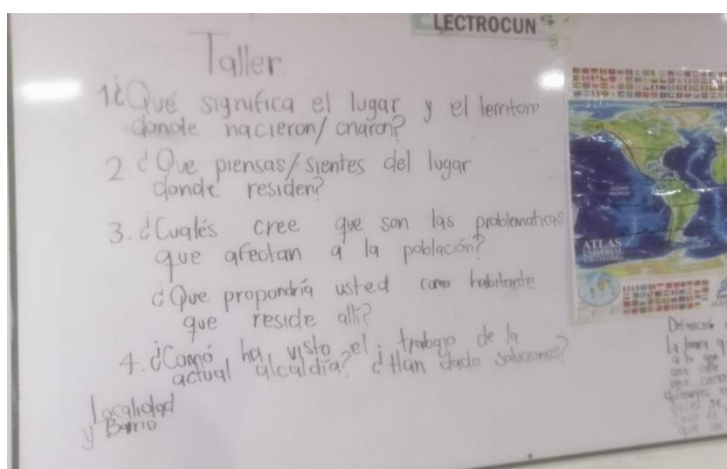 LECTROCUN
Taller
1¿Qué significa el lugar y el territorio
donde nacieron/criaron?
2 ¿Que piensas/sientes del lugar
donde residen?
3. ¿Cuales cree que son las problematicas
que afectan a la población?
¿Que propondría usted como habitante
que reside allí?
4. ¿Comó ha visto el trabajo de la
actual alcaldía? ¿Han dado soluciones?
Localidad
y Barrio
ATLAS
UNIVERSAL